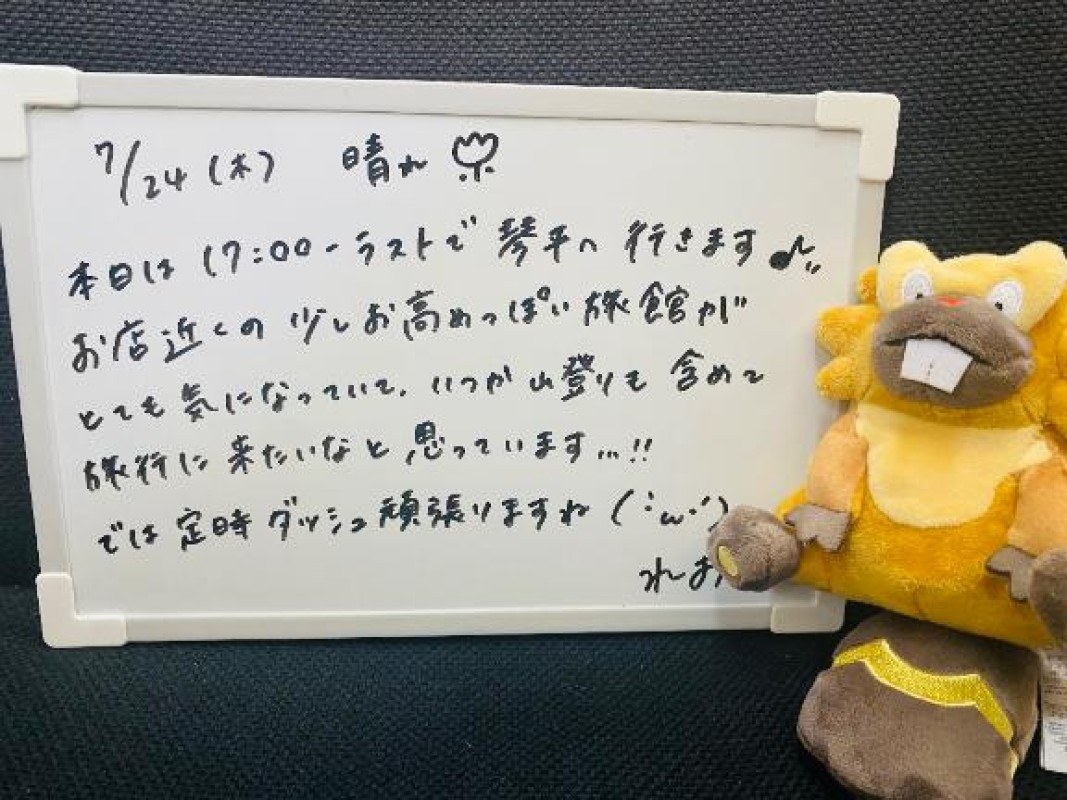 7/24(木) 晴れ
本日は 17:00-ラストで 琴平へ 行きます♪
お店近くの 少しお高めっぽい旅館が
とても気になっていて、いつか山登りも含めて
旅行に来たいなと思っています...!!
では定時ダッシュ頑張りますね(˙ω˙)